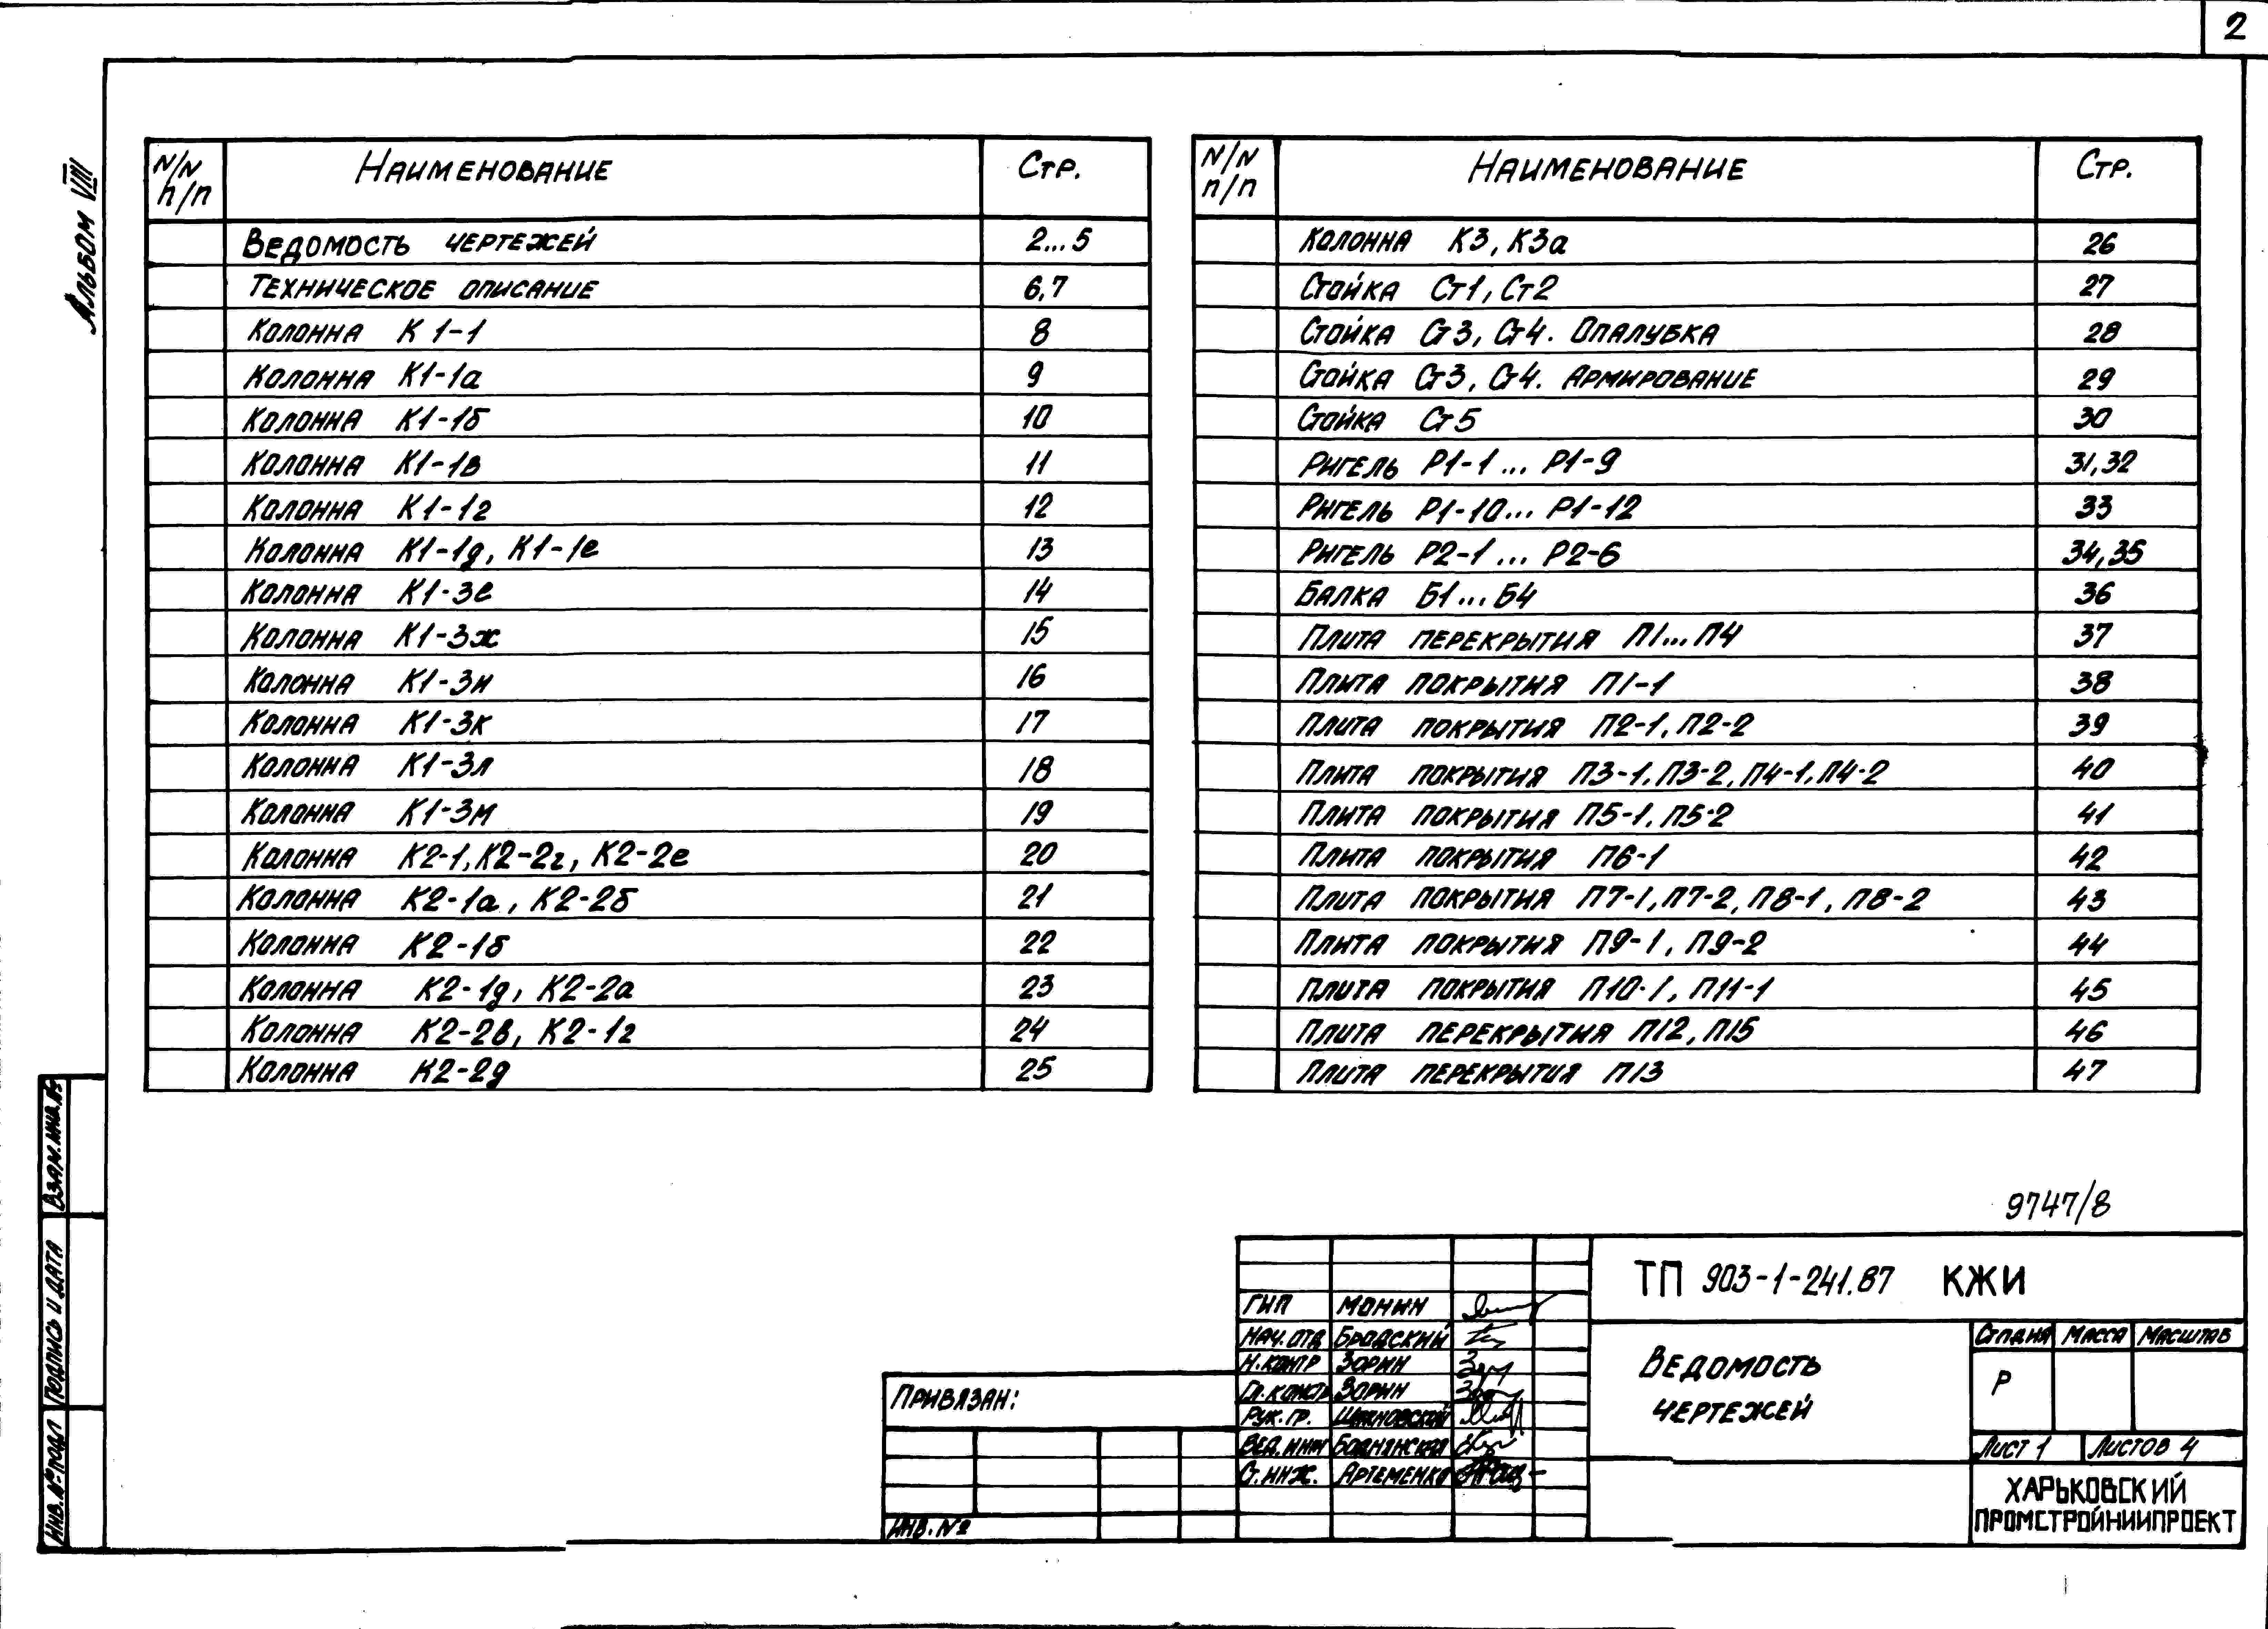 2
Альбом VIII
N/N п/п Наименование Стр.
Ведомость чертежей 2...5
Техническое описание 6,7
Колонна К 1-1 8
Колонна К1-1а 9
Колонна К1-1б 10
Колонна К1-1в 11
Колонна К1-1г 12
Колонна К1-1д, К1-1е 13
Колонна К1-3е 14
Колонна К1-3ж 15
Колонна К1-3и 16
Колонна К1-3к 17
Колонна К1-3л 18
Колонна К1-3м 19
Колонна К2-1, К2-2г, К2-2е 20
Колонна К2-1а, К2-2б 21
Колонна К2-1б 22
Колонна К2-1д, К2-2а 23
Колонна К2-2в, К2-1г 24
Колонна К2-2д 25
N/N п/п Наименование Стр.
Колонна К3, К3а 26
Стойка Ст1, Ст2 27
Стойка Ст3, Ст4. Опалубка 28
Стойка Ст3, Ст4. Армирование 29
Стойка Ст5 30
Ригель Р1-1... Р1-9 31,32
Ригель Р1-10... Р1-12 33
Ригель Р2-1 ... Р2-6 34,35
Балка Б1...Б4 36
Плита перекрытия П1...П4 37
Плита покрытия П1-1 38
Плита покрытия П2-1, П2-2 39
Плита покрытия П3-1, П3-2, П4-1, П4-2 40
Плита покрытия П5-1, П5-2 41
Плита покрытия П6-1 42
Плита покрытия П7-1, П7-2, П8-1, П8-2 43
Плита покрытия П9-1, П9-2 44
Плита покрытия П10-1, П11-1 45
Плита перекрытия П12, П15 46
Плита перекрытия П13 47
Взам.инв.№
Подпись и дата
Инв.№подл
9747/8
ТП 903-1-241.87 КЖИ
ГИП Монин
Нач.отд Бродский
Н.контр Зорин
Гл.констр Зорин
Рук.гр.
Вед.инж Боднянская
Ст.инж. Артеменко
Привязан:
Инв.№
Ведомость
чертежей
Стадия Масса Масштаб
Р
Лист 1 Листов 4
ХАРЬКОВСКИЙ
ПРОМСТРОЙНИИПРОЕКТ